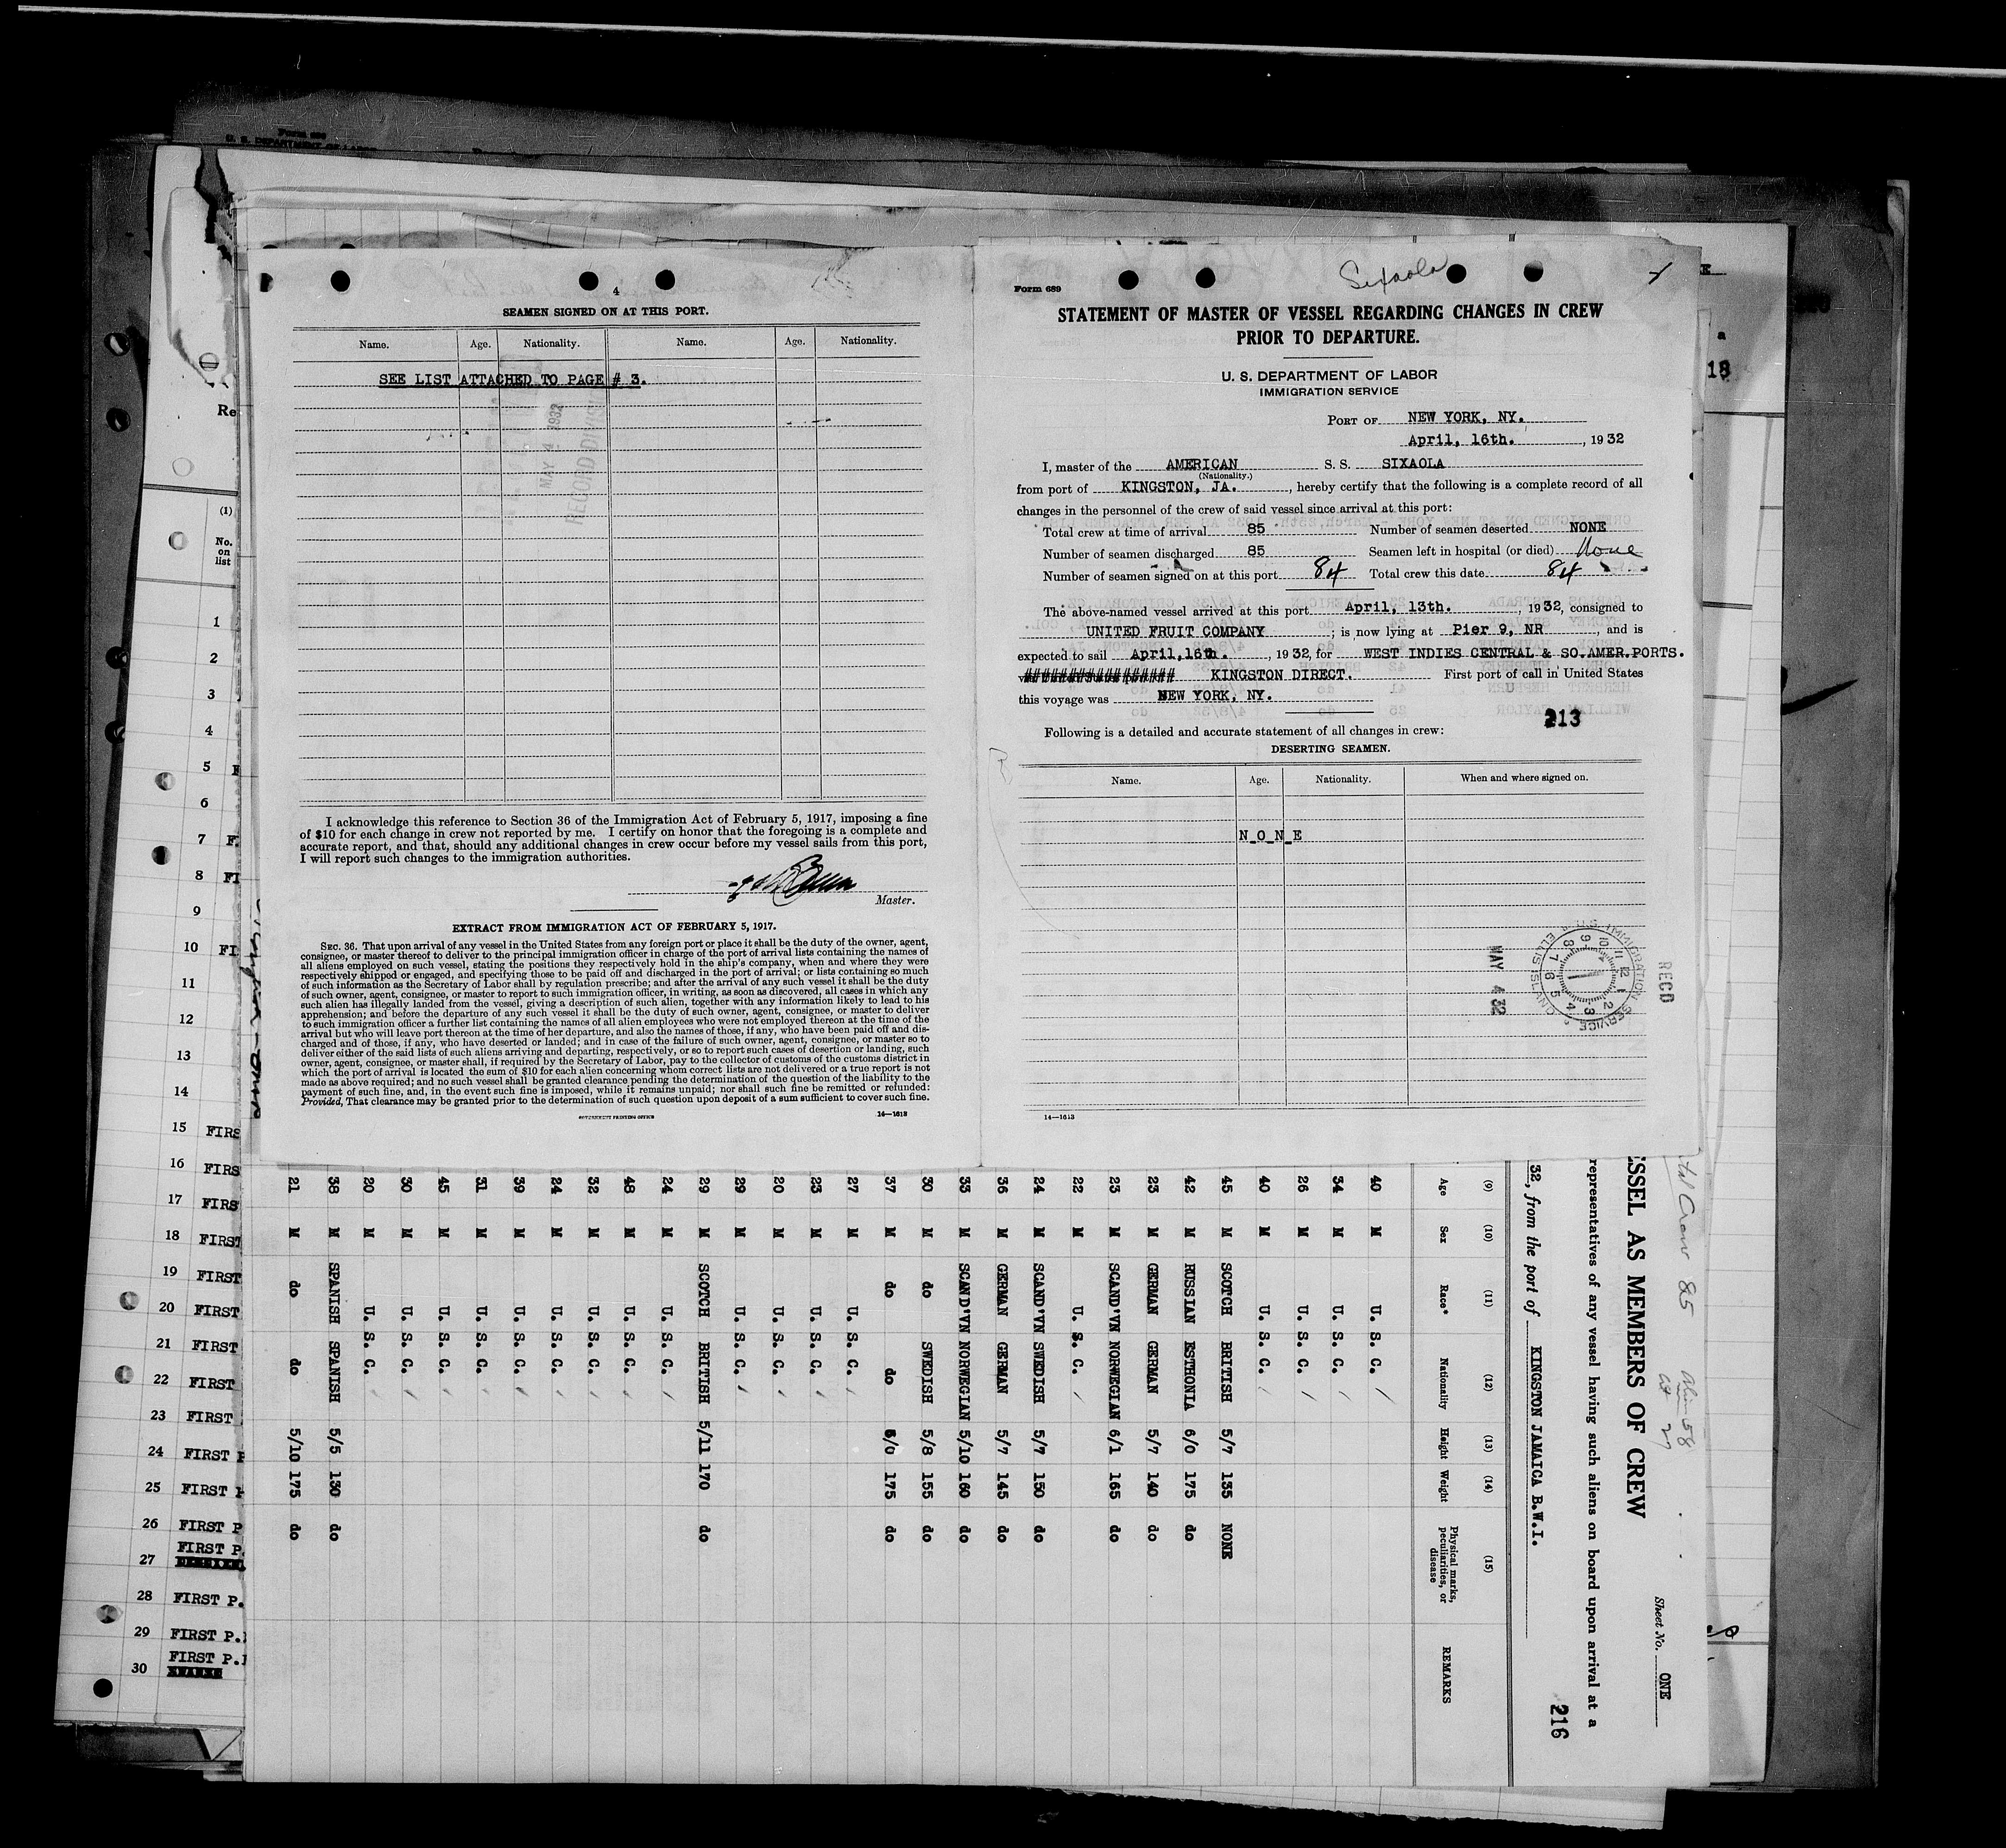 4
SEAMEN SIGNED ON AT THIS PORT.
Name. Age. Nationality. Name. Age. Nationality.
SEE LIST ATTACHED TO PAGE # 3.
MAY 4 1932
RECORD DIVISION
I acknowledge this reference to Section 36 of the Immigration Act of February 5, 1917, imposing a fine
of $10 for each change in crew not reported by me. I certify on honor that the foregoing is a complete and
accurate report, and that, should any additional changes in crew occur before my vessel sails from this port,
I will report such changes to the immigration authorities.
Master.
EXTRACT FROM IMMIGRATION ACT OF FEBRUARY 5, 1917.
SEC. 36. That upon arrival of any vessel in the United States from any foreign port or place it shall be the duty of the owner, agent,
consignee, or master thereof to deliver to the principal immigration officer in charge of the port of arrival lists containing the names of
all aliens employed on such vessel, stating the positions they respectively hold in the ship's company, when and where they were
respectively shipped or engaged, and specifying those to be paid off and discharged in the port of arrival; or lists containing so much
of such information as the Secretary of Labor shall by regulation prescribe; and after the arrival of any such vessel it shall be the duty
of such owner, agent, consignee, or master to report to such immigration officer, in writing, as soon as discovered, all cases in which any
such alien has illegally landed from the vessel, giving a description of such alien, together with any information likely to lead to his
apprehension; and before the departure of any such vessel it shall be the duty of such owner, agent, consignee, or master to deliver
to such immigration officer a further list containing the names of all alien employees who were not employed thereon at the time of the
arrival but who will leave port thereon at the time of her departure, and also the names of those, if any, who have been paid off and dis-
charged and of those, if any, who have deserted or landed; and in case of the failure of such owner, agent, consignee, or master so to
deliver either of the said lists of such aliens arriving and departing, respectively, or so to report such cases of desertion or landing, such
owner, agent, consignee, or master shall, if required by the Secretary of Labor, pay to the collector of customs of the customs district in
which the port of arrival is located the sum of $10 for each alien concerning whom correct lists are not delivered or a true report is not
made as above required; and no such vessel shall be granted clearance pending the determination of the question of the liability to the
payment of such fine, and, in the event such fine is imposed, while it remains unpaid; nor shall such fine be remitted or refunded:
Provided, That clearance may be granted prior to the determination of such question upon deposit of a sum sufficient to cover such fine.
GOVERNMENT PRINTING OFFICE 14—1613
Form 689
Sixaola
STATEMENT OF MASTER OF VESSEL REGARDING CHANGES IN CREW
PRIOR TO DEPARTURE.
U. S. DEPARTMENT OF LABOR
IMMIGRATION SERVICE
PORT OF NEW YORK, NY.
April, 16th. , 1932
I, master of the AMERICAN S. S. SIXAOLA
(Nationality.)
from port of KINGSTON, JA. , hereby certify that the following is a complete record of all
changes in the personnel of the crew of said vessel since arrival at this port:
Total crew at time of arrival 85 Number of seamen deserted NONE
Number of seamen discharged 85 Seamen left in hospital (or died) None
Number of seamen signed on at this port 84 Total crew this date 84
The above-named vessel arrived at this port April, 13th. , 1932, consigned to
UNITED FRUIT COMPANY ; is now lying at Pier 9, NR , and is
expected to sail April,16th. , 1932, for WEST INDIES CENTRAL & SO.AMER.PORTS.
KINGSTON DIRECT. First port of call in United States
this voyage was NEW YORK, NY.
213
Following is a detailed and accurate statement of all changes in crew:
DESERTING SEAMEN.
Name. Age. Nationality. When and where signed on.
N O N E
RECD
U.S. IMMIGRATION SERVICE
ELLIS ISLAND
MAY 4 32
14—1613
Form 689
U. S. DEPARTMENT OF LABOR
Re
(1)
No.
on
list
1
2
3
4
5
6
7 F.
8 FI
9
10 FI
11
12
13
14
15 FIRS
16 FIRS
17 FIRS
18 FIRST
19 FIRST
20 FIRST
21 FIRST
22 FIRST
23 FIRST
24 FIRST P
25 FIRST P
26 FIRST P
FIRST P.
27
28 FIRST P.
29 FIRST P.
FIRST P.
30
18
Sheet No. ONE
Total Crew 85
Alien 58
27
ESSEL AS MEMBERS OF CREW
representatives of any vessel having such aliens on board upon arrival at a
32, from the port of KINGSTON JAMAICA B.W.I.
216
(9) (10) (11) (12) (13) (14) (15)
Age Sex Race* Nationality Height Weight Physical marks, peculiarities, or disease REMARKS
40 M U. S. C.
34 M U. S. C.
26 M U. S. C.
40 M U. S. C.
45 M SCOTCH BRITISH 5/7 135 NONE
42 M RUSSIAN ESTHONIA 6/0 175 do
23 M GERMAN GERMAN 5/7 140 do
23 M SCAND'VN NORWEGIAN 6/1 165 do
22 M U. S. C.
24 M SCAND'VN SWEDISH 5/7 150 do
36 M GERMAN GERMAN 5/7 145 do
33 M SCAND'VN NORWEGIAN 5/10 160 do
30 M do SWEDISH 5/8 155 do
37 M do do 6/0 175 do
27 M U. S. C.
23 M U. S. C.
20 M U. S. C.
29 M U. S. C.
29 M SCOTCH BRITISH 5/11 170 do
24 M U. S. C.
48 M U. S. C.
32 M U. S. C.
24 M U. S. C.
39 M U. S. C.
31 M U. S. C.
45 M U. S. C.
30 M U. S. C.
20 M U. S. C.
38 M SPANISH SPANISH 5/5 130 do
21 M do do 5/10 175 do